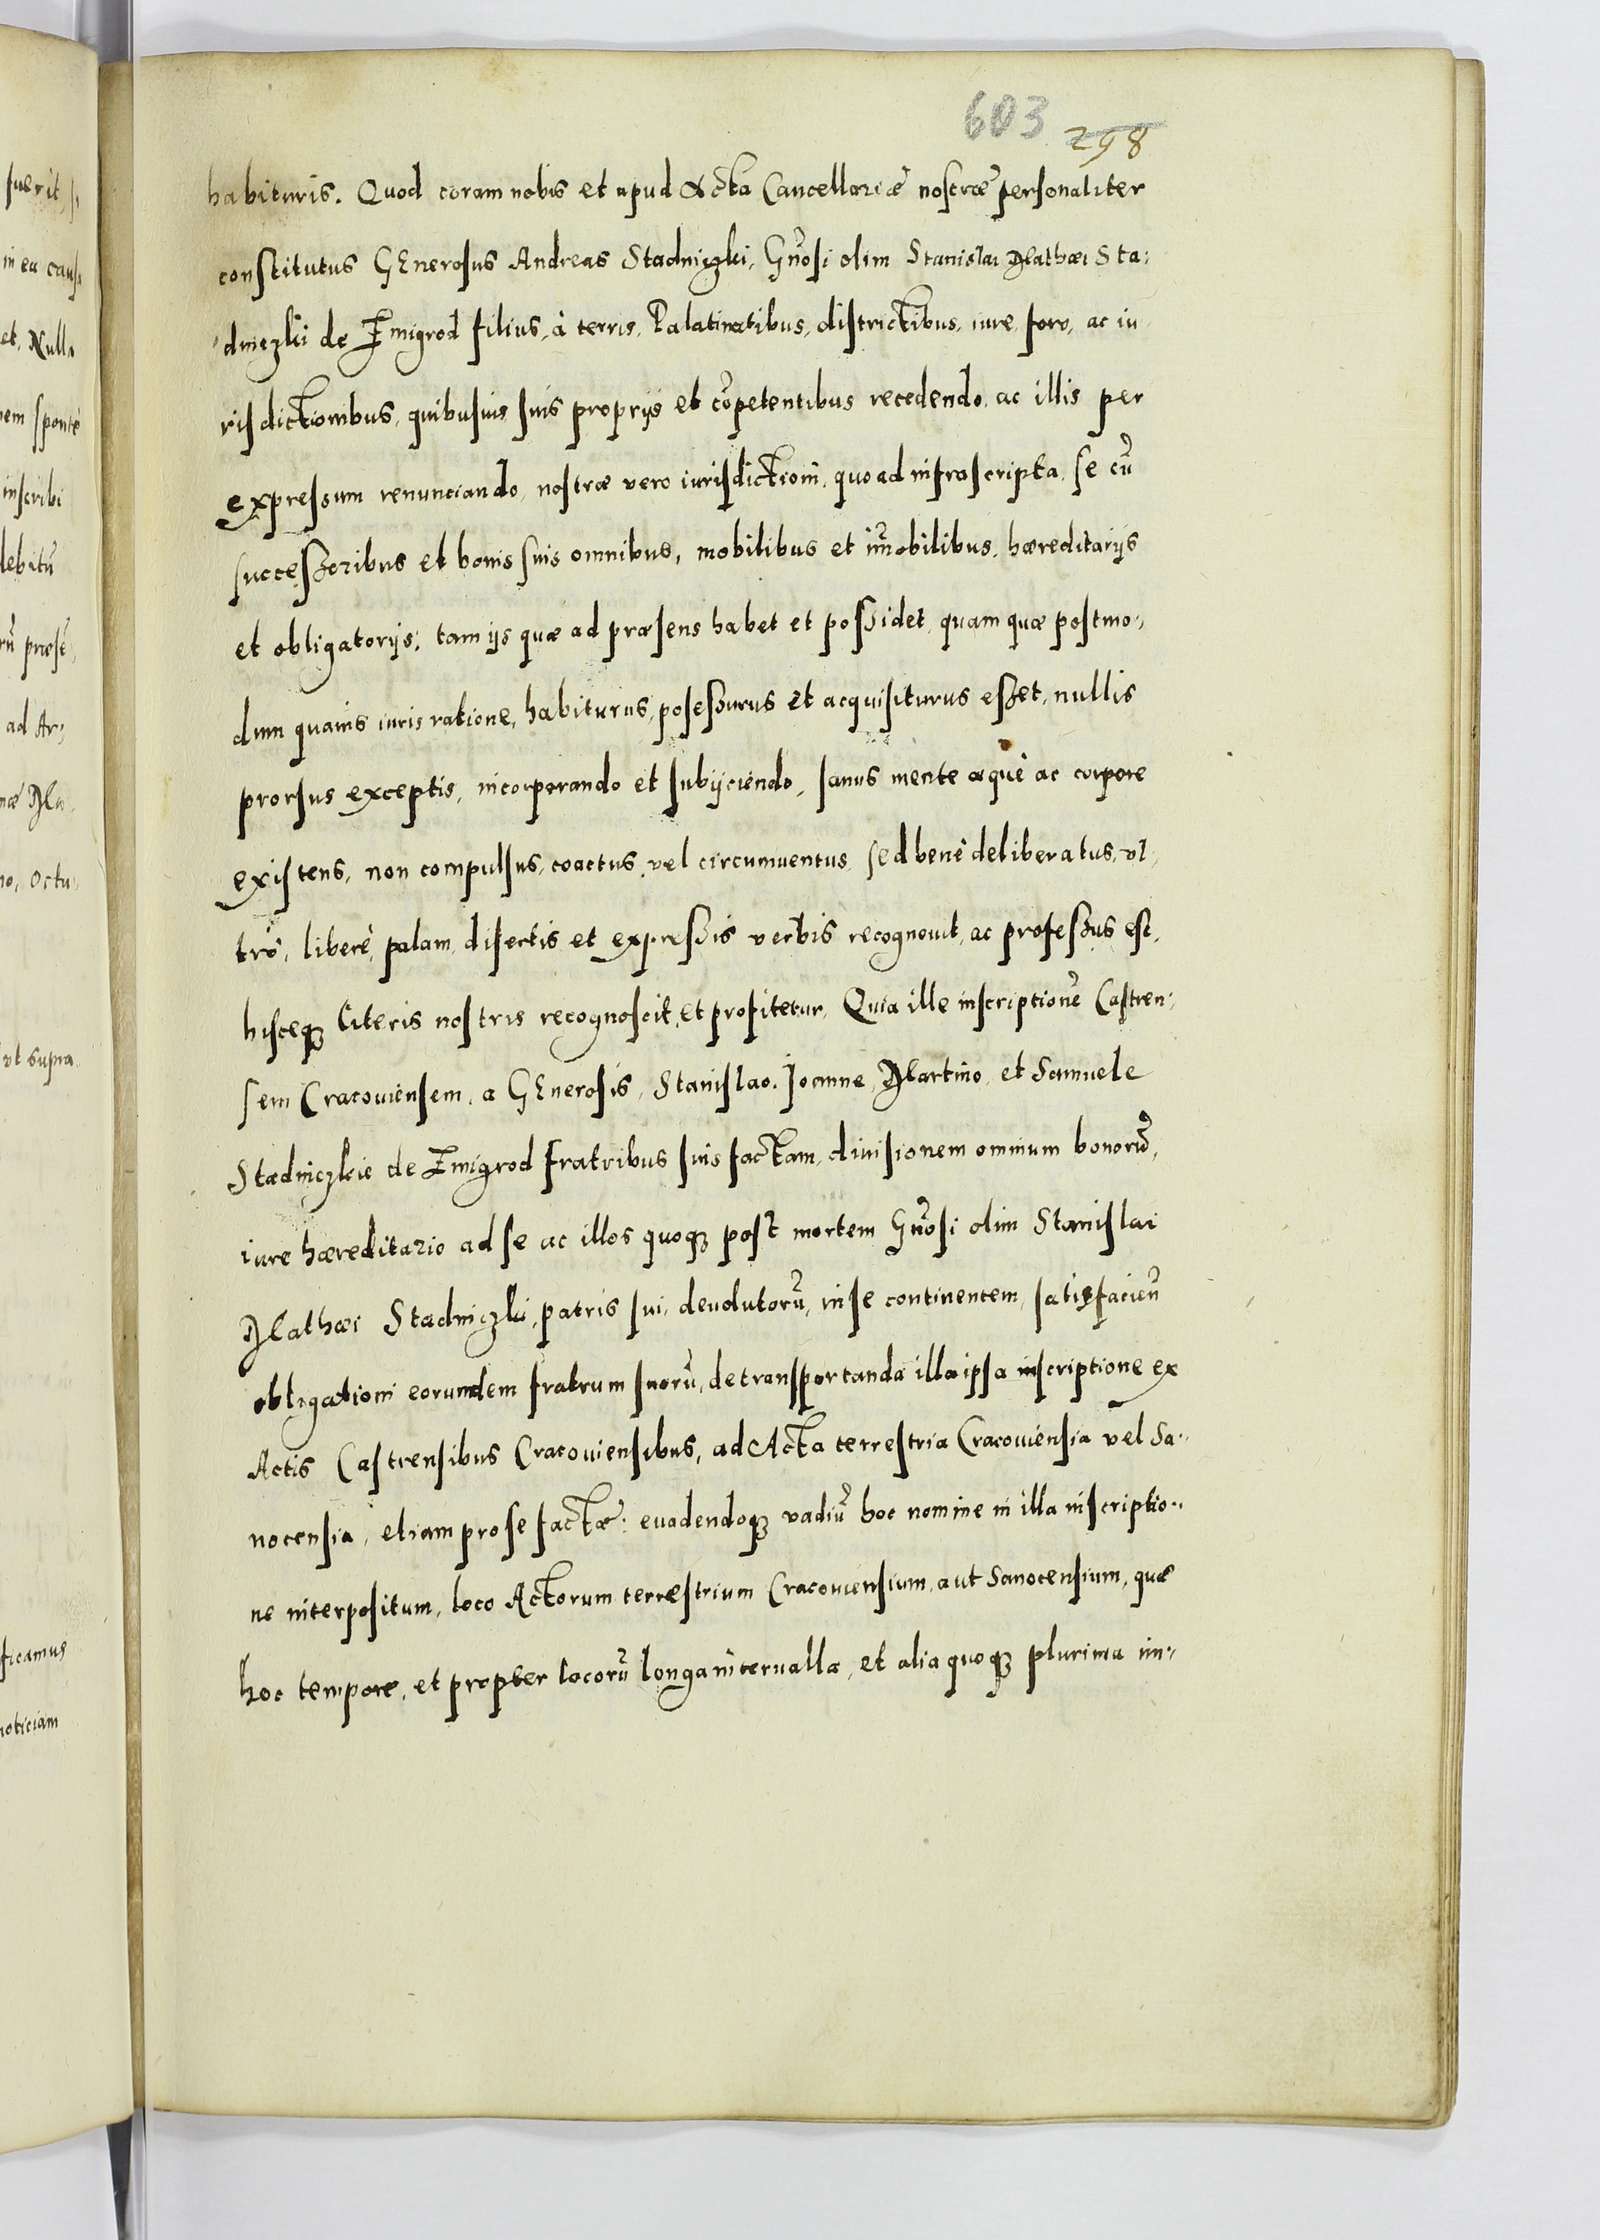 603
298
habituris. Quod coram nobis et apud Acta Cancellariæ nostræ personaliter
constitutus GEnerosus Andreas Stadniczki, Gn̄osi olim Stanislai Mathæi Sta-
dniczki de Zmigrod filius, à terris, Palatinatibus, districtibus, iure, foro, ac iu
risdictionibus, quibusuis suis proprijs et cōpetentibus recedendo, ac illis per
expressum renunciando, nostræ vero iurisdictioni, quoad infrascripta, se cū
successoribus et bonis suis omnibus, mobilibus et im̄obilibus, hæreditarijs
et obligatorijs, tam ijs quæ ad præsens habet et possidet, quam quæ postmo-
dum quauis iuris ratione, habiturus, posessurus et acquisiturus esset, nullis
prorsus exceptis, incorporando et subijciendo, sanus mente æquè ac corpore
existens, non compulsus, coactus, vel circumuentus, sed benè deliberatus, vl-
trò, liberè, palam, disertis et expressis verbis recognouit, ac professus est,
hisceq3 literis nostris recognoscit, et profitetur, Quia ille inscriptionē Castren-
sem Cracouiensem, a GEnerosis, Stanislao, Joanne, Martino, et Samuele
Stadniczkie de Zmigrod fratribus suis factam, diuisionem omnium bonorū,
iure hæreditario ad se ac illos quoq3 post mortem Gn̄osi olim Stanislai
Mathæi Stadniczki, patris sui, deuolutorū, in se continentem, satisfacien̄
obligationi eorundem fratrum suorū, de transportanda illa ipsa inscriptione ex
Actis Castrensibus Cracouiensibus, ad Acta terrestria Cracouiensia vel Sa-
nocensia, etiam pro se factæ: euadendoq3 vadiū hoc nomine in illa inscriptio-
ne interpositum, loco Actorum terrestrium Cracouiensium, aut Sanocensium, quæ
hoc tempore, et propter locorū longa interualla, et alia quoq3 plurima im-